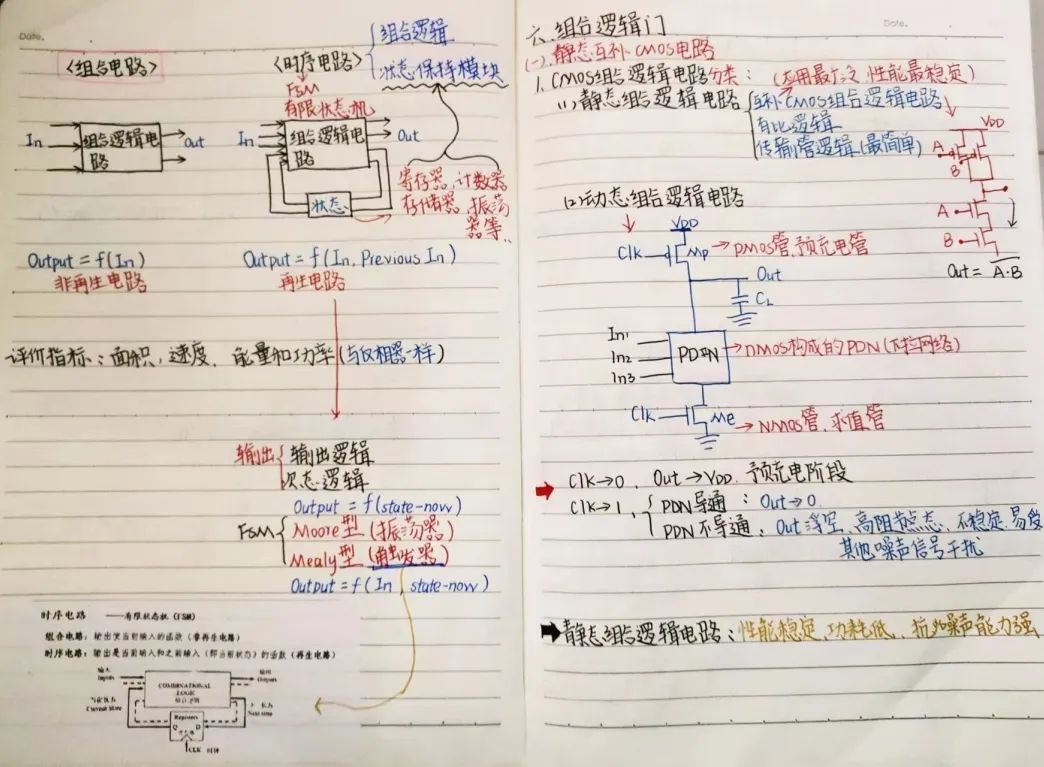 Date.
<组合电路>
<时序电路>
组合逻辑
状态保持模块
FSM
有限状态机
In
组合逻辑电路
Out
In
组合逻辑电路
Out
状态
寄存器、计数器
存储器、振荡
器等..
Output = f(In)
非再生电路
Output = f(In, Previous In)
再生电路
评价指标:面积、速度、能量和功率(与反相器一样)
输出
输出逻辑
次态逻辑
Output = f(state-now)
FSM
Moore型(振荡器)
Mealy型(触发器)
Output = f(In, state-now)
时序电路 ——有限状态机(FSM)
组合电路:输出是当前输入的函数(非再生电路)
时序电路:输出是当前输入和之前输入(即当前状态)的函数(再生电路)
输入
Inputs
COMBINATIONAL
LOGIC
组合逻辑
输出
Outputs
当前状态
Current State
下一状态
Next state
Registers
Q
D
CLK 时钟
Date.
六.组合逻辑门
(一).静态互补CMOS电路
1.CMOS组合逻辑电路分类:(应用最广泛 性能最稳定)
(1)静态组合逻辑电路
互补CMOS组合逻辑电路
有比逻辑
传输管逻辑(最简单)
VDD
A
B
A
B
Out = A·B
(2)动态组合逻辑电路
VDD
Clk
Mp
PMOS管、预充电管
Out
CL
In1
In2
In3
PDN
nMOS构成的PDN(下拉网络)
Clk
Me
NMOS管、求值管
Clk→0. Out→VDD. 预充电阶段
Clk→1,
PDN导通:Out→0.
PDN不导通:Out浮空、高阻节点态、不稳定、易受
其他噪声信号干扰
静态组合逻辑电路:性能稳定、功耗低、抗噪声能力强